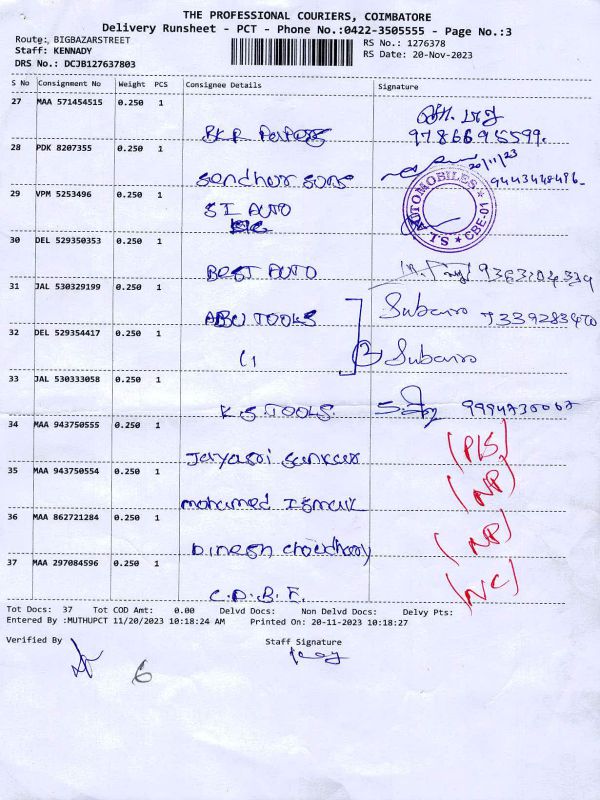 THE PROFESSIONAL COURIERS, COIMBATORE
Delivery Runsheet - PCT - Phone No.:0422-3505555 - Page No.:3
Route: BIGBAZARSTREET
Staff: KENNADY
DRS No.: DCJB127637803
RS No.: 1276378
RS Date: 20-Nov-2023
S No Consignment No Weight PCS Consignee Details Signature
27 MAA 571454515 0.250 1
BKR
9786695599.
28 PDK 8207355 0.250 1
Sendhur Sons 20/11/23
9443448496
29 VPM 5253496 0.250 1
SI AUTO
AUTOMOBILES ★ CBE-01 ★ TS
30 DEL 529350353 0.250 1
BEST AUTO
31 JAL 530329199 0.250 1
ABU TOOLS
32 DEL 529354417 0.250 1
11 2
33 JAL 530333058 0.250 1
K.S TOOLS.
34 MAA 943750555 0.250 1
Jayasri Sankar (P/S)
35 MAA 943750554 0.250 1
mohamed Ismail (NP)
36 MAA 862721284 0.250 1
Dinesh choudhary (NP)
37 MAA 297084596 0.250 1
C.D.B.E. (NC)
Tot Docs: 37 Tot COD Amt: 0.00 Delvd Docs: Non Delvd Docs: Delvy Pts:
Entered By :MUTHUPCT 11/20/2023 10:18:24 AM Printed On: 20-11-2023 10:18:27
Verified By Staff Signature
6